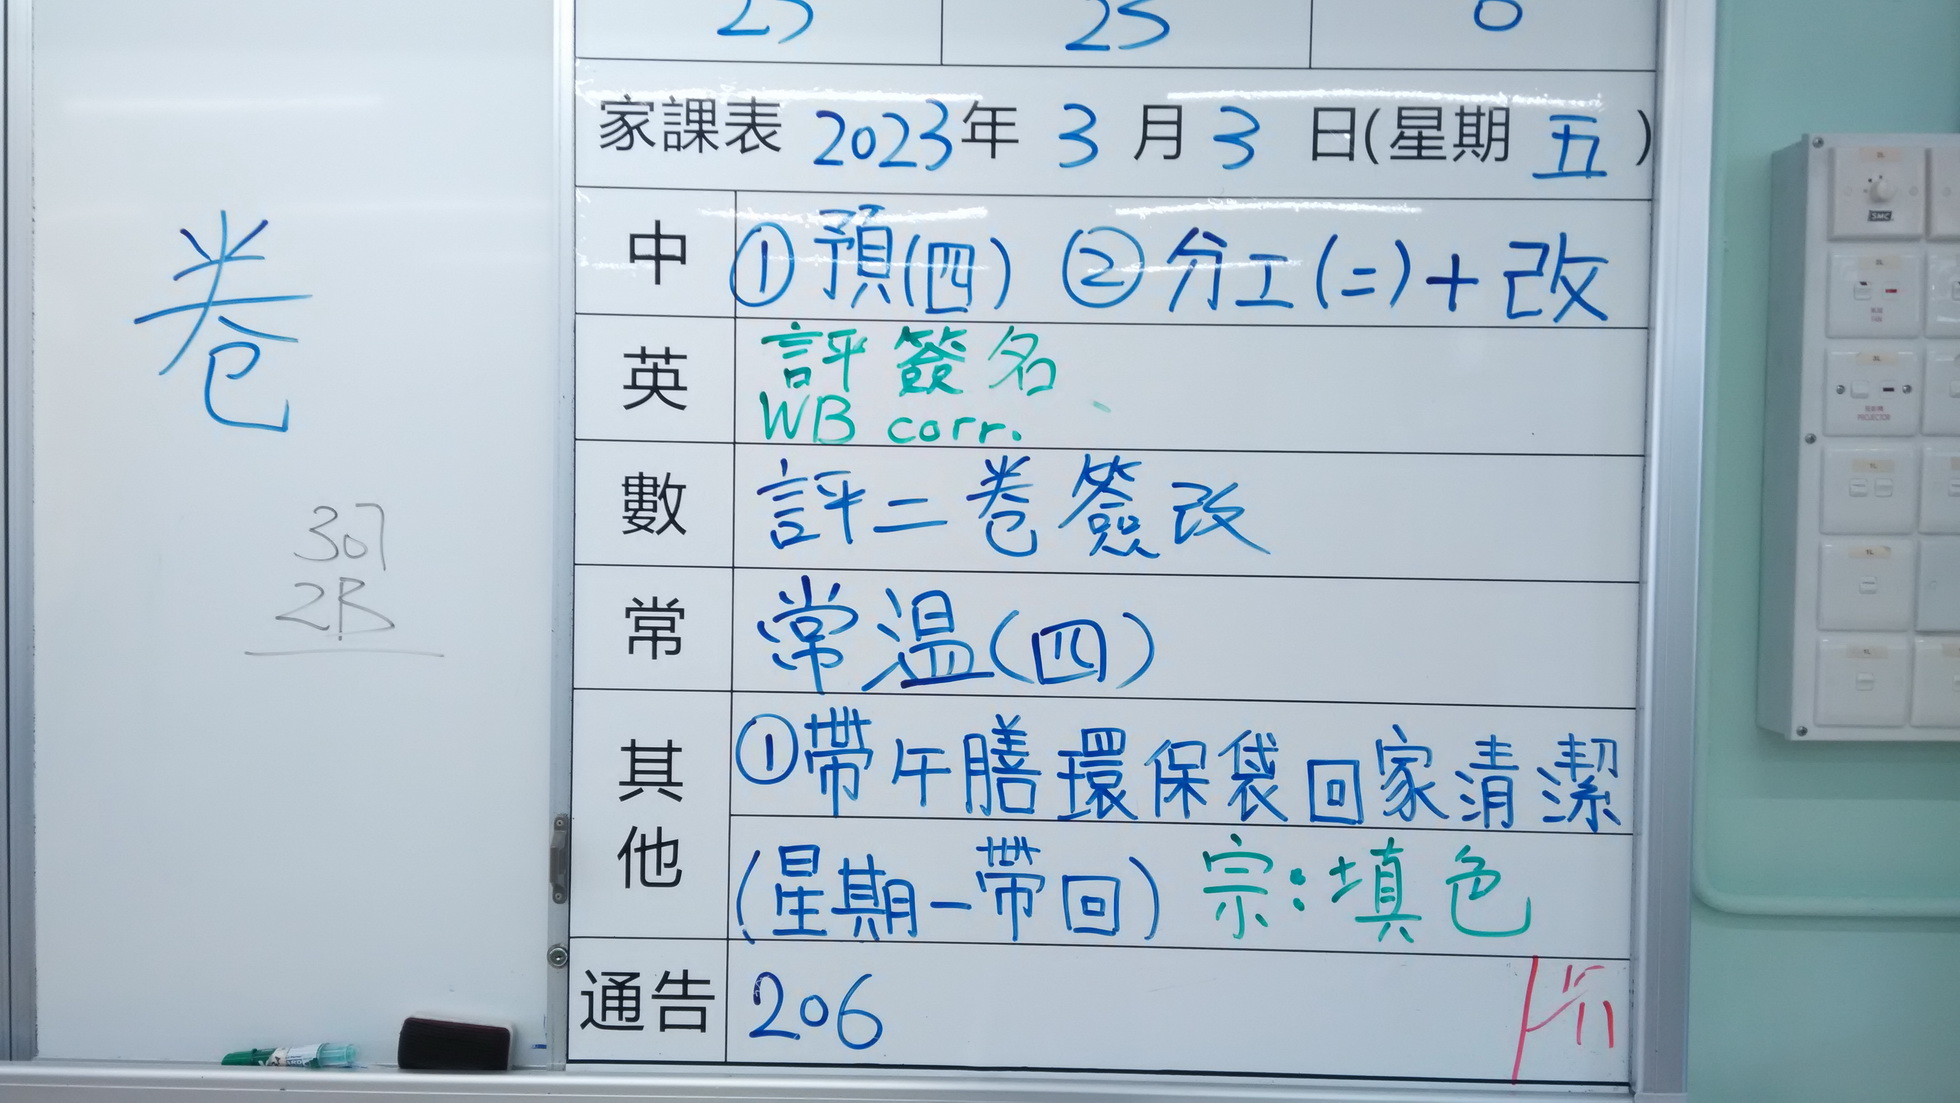 25 25 0
家課表 2023年 3 月 3 日(星期 五 )
中 ①預(四) ②分工(二)+改
英 評簽名
WB corr.
數 評二卷簽改
常 常溫(四)
其他 ①帶午膳環保袋回家清潔
(星期一帶回) 宗:填色
通告 206
卷
307
2B
SMC
PROJECTOR